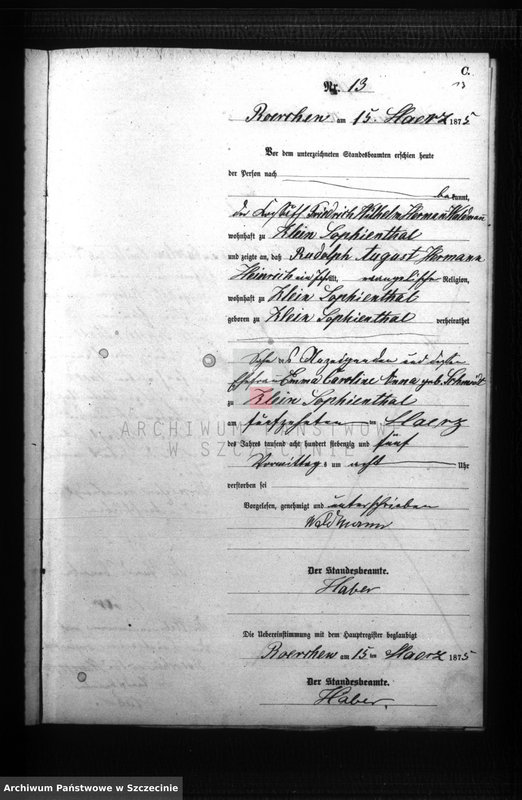 C.
Nr. 13
13
Roerchen am 15. Maerz 1875
Vor dem unterzeichneten Standesbeamten erschien heute
der Person nach
bekannt,
der Friedrich Wilhelm Herman Waldman
wohnhaft zu Klein Sophienthal
und zeigte an, daß Rudolph August Hermann
Heinrich ein Jahr alt, evangelischer Religion,
wohnhaft zu Klein Sophienthal
geboren zu Klein Sophienthal verheirathet
Sohn des Anzeigenden und dessen
Ehefrau Emma Caroline Anna geb. Schmidt
zu Klein Sophienthal
am fünfzehnten Maerz
des Jahres tausend acht hundert siebenzig und fünf
Vormittags um acht Uhr
verstorben sei
Vorgelesen, genehmigt und unterschrieben
Waldmann
Der Standesbeamte.
Haber
Die Uebereinstimmung mit dem Hauptregister beglaubigt
Roerchen am 15 ten Maerz 1875
Der Standesbeamte.
Haber.
ARCHIWUM PAŃSTWOWE
W SZCZECINIE
Archiwum Państwowe w Szczecinie